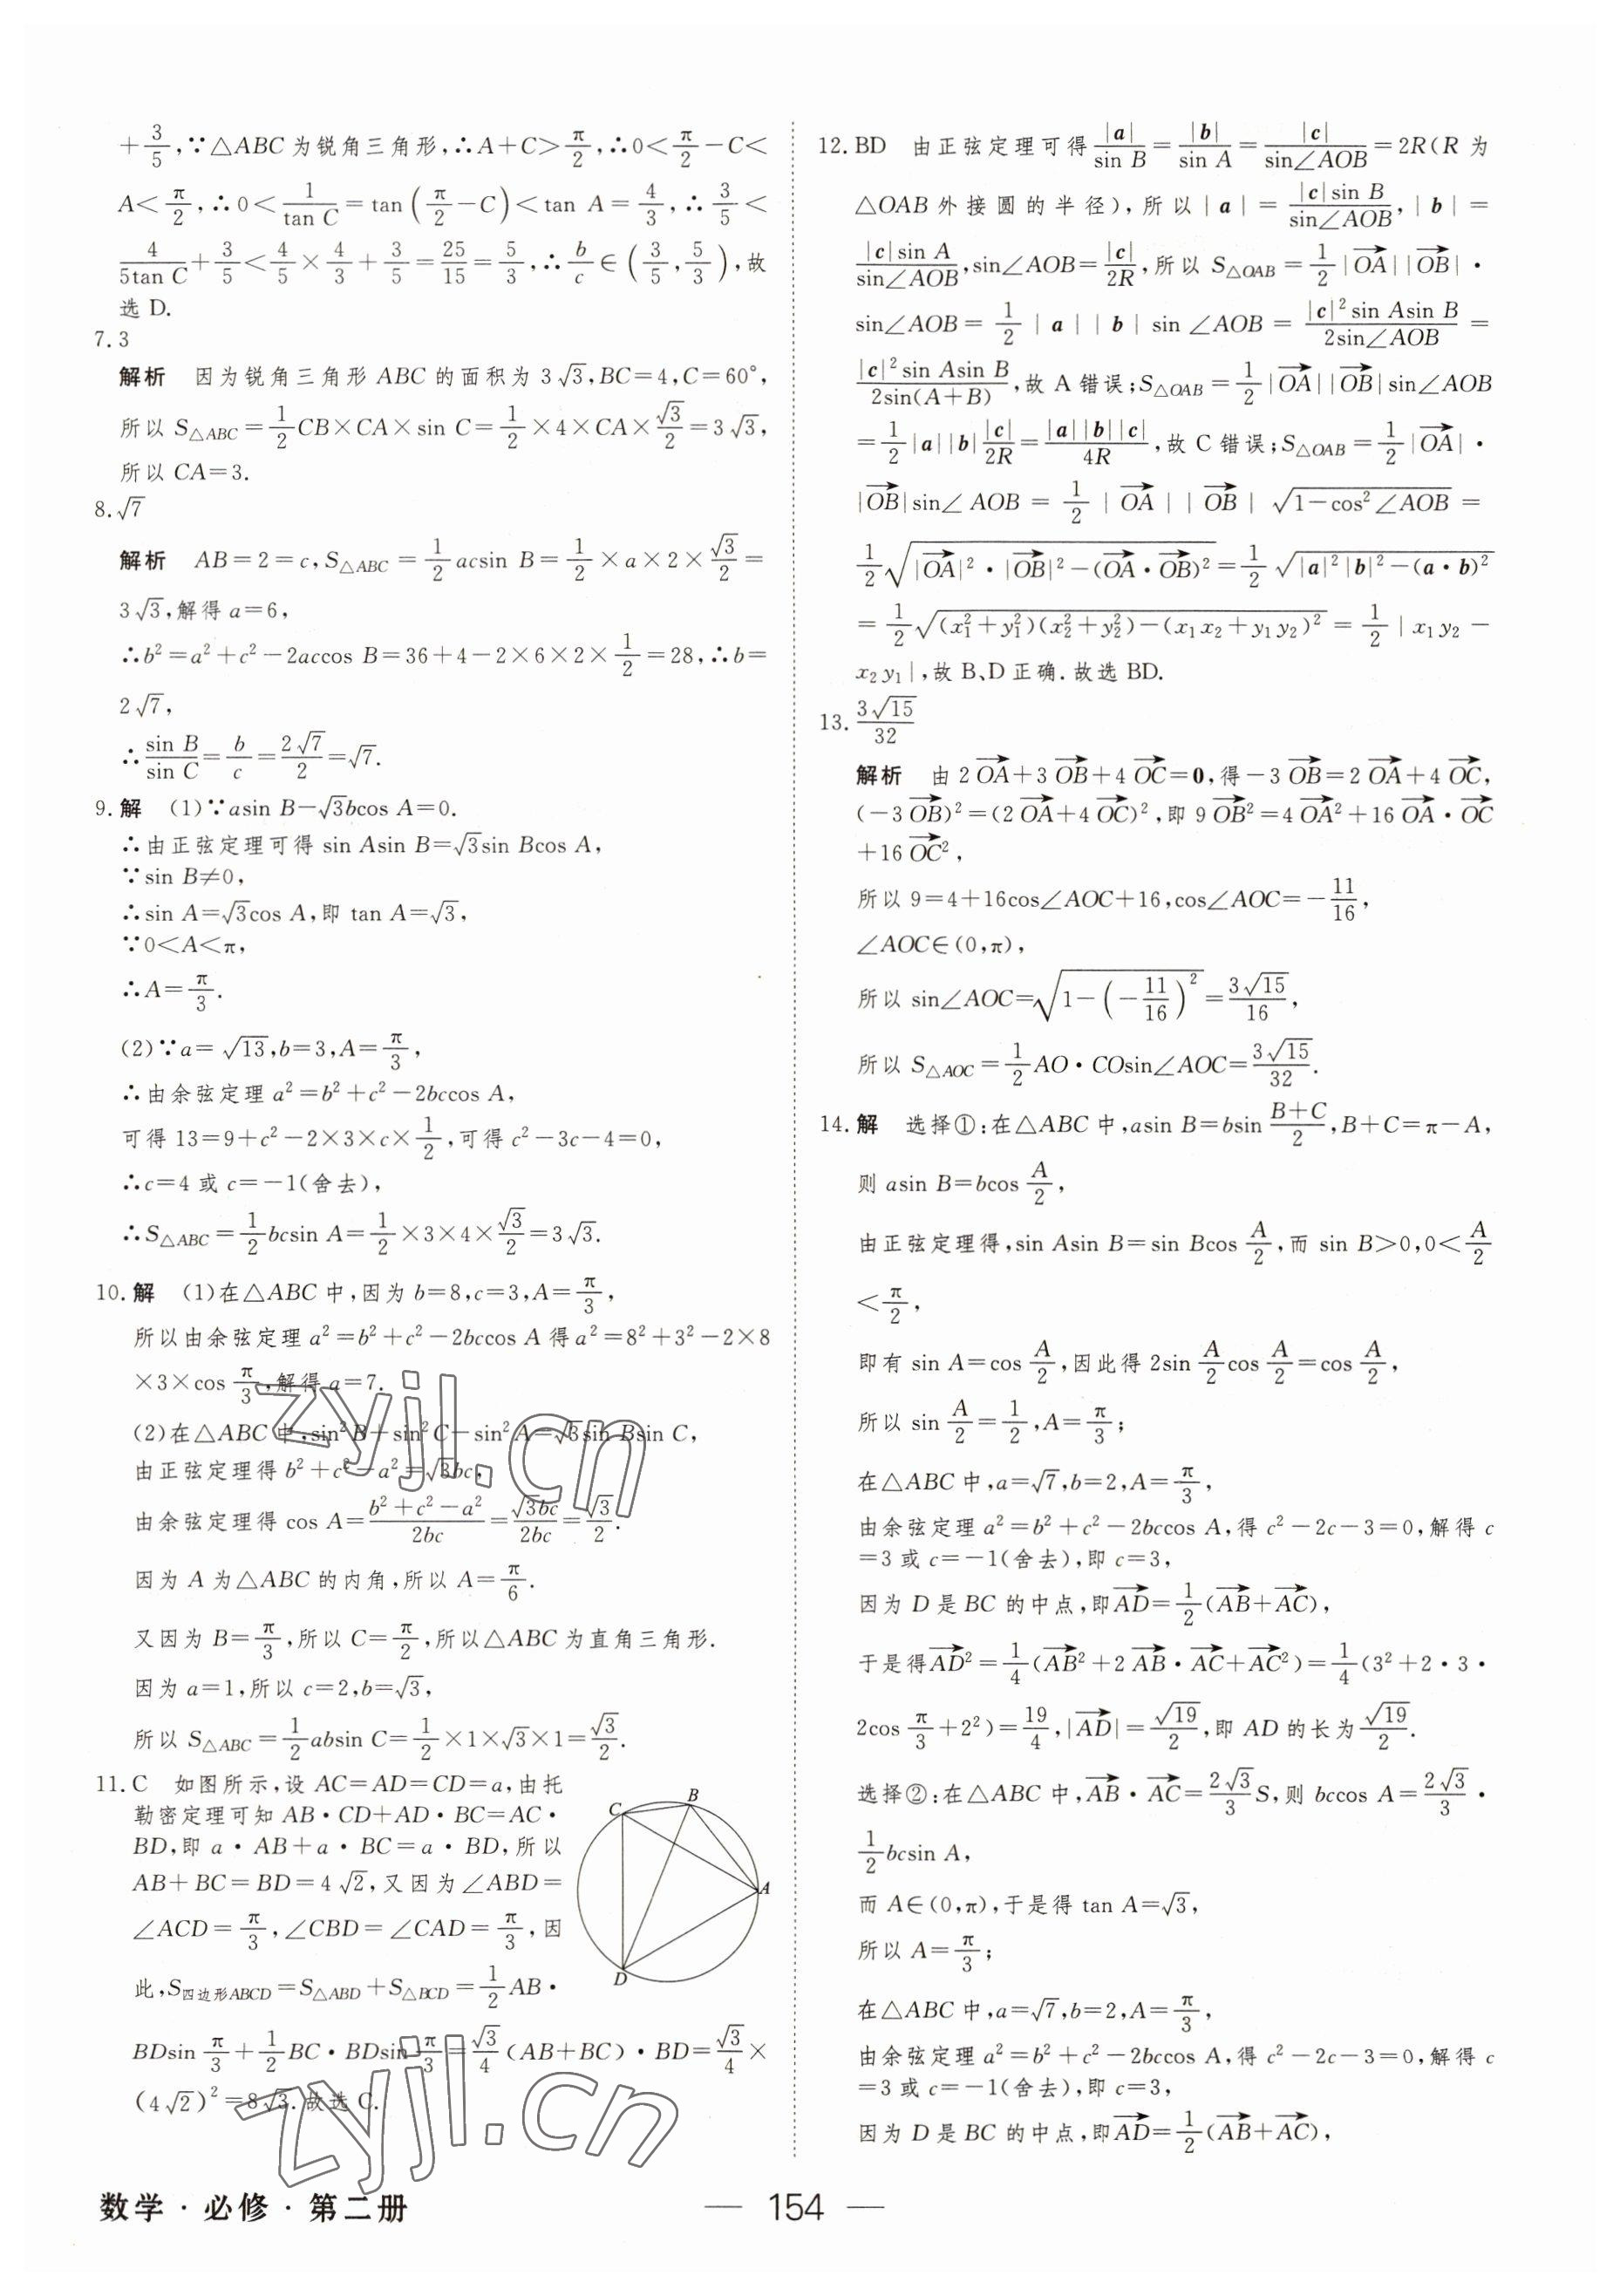 +3/5,∵△ABC 为锐角三角形,∴A+C>π/2,∴0<π/2−C<
A<π/2,∴0<1/tan C=tan(π/2−C)<tan A=4/3,∴3/5<
4/(5tan C)+3/5<4/5×4/3+3/5=25/15=5/3,∴b/c∈(3/5,5/3),故
选 D.
7.3
解析 因为锐角三角形 ABC 的面积为 3√3,BC=4,C=60°,
所以 S△ABC=1/2CB×CA×sin C=1/2×4×CA×√3/2=3√3,
所以 CA=3.
8.√7
解析 AB=2=c,S△ABC=1/2acsin B=1/2×a×2×√3/2=
3√3,解得 a=6,
∴b²=a²+c²−2accos B=36+4−2×6×2×1/2=28,∴b=
2√7,
∴sin B/sin C=b/c=2√7/2=√7.
9.解 (1)∵asin B−√3bcos A=0.
∴由正弦定理可得 sin Asin B=√3sin Bcos A,
∵sin B≠0,
∴sin A=√3cos A,即 tan A=√3,
∵0<A<π,
∴A=π/3.
(2)∵a=√13,b=3,A=π/3,
∴由余弦定理 a²=b²+c²−2bccos A,
可得 13=9+c²−2×3×c×1/2,可得 c²−3c−4=0,
∴c=4 或 c=−1(舍去),
∴S△ABC=1/2bcsin A=1/2×3×4×√3/2=3√3.
10.解 (1)在△ABC 中,因为 b=8,c=3,A=π/3,
所以由余弦定理 a²=b²+c²−2bccos A 得 a²=8²+3²−2×8
×3×cos π/3,解得 a=7.
(2)在△ABC 中,sin²B+sin²C−sin²A=√3sin Bsin C,
由正弦定理得 b²+c²−a²=√3bc,
由余弦定理得 cos A=(b²+c²−a²)/2bc=√3bc/2bc=√3/2.
因为 A 为△ABC 的内角,所以 A=π/6.
又因为 B=π/3,所以 C=π/2,所以△ABC 为直角三角形.
因为 a=1,所以 c=2,b=√3,
所以 S△ABC=1/2absin C=1/2×1×√3×1=√3/2.
11.C 如图所示,设 AC=AD=CD=a,由托
勒密定理可知 AB·CD+AD·BC=AC·
BD,即 a·AB+a·BC=a·BD,所以
AB+BC=BD=4√2,又因为∠ABD=
∠ACD=π/3,∠CBD=∠CAD=π/3,因
此,S四边形ABCD=S△ABD+S△BCD=1/2AB·
BDsin π/3+1/2BC·BDsin π/3=√3/4(AB+BC)·BD=√3/4×
(4√2)²=8√3.故选 C.
B
C
A
D
12.BD 由正弦定理可得|a|/sin B=|b|/sin A=|c|/sin∠AOB=2R(R 为
△OAB 外接圆的半径),所以|a|=|c|sin B/sin∠AOB,|b|=
|c|sin A/sin∠AOB,sin∠AOB=|c|/2R,所以 S△OAB=1/2|OA→||OB→|·
sin∠AOB=1/2|a||b|sin∠AOB=|c|²sin Asin B/2sin∠AOB=
|c|²sin Asin B/2sin(A+B),故 A 错误;S△OAB=1/2|OA→||OB→|sin∠AOB
=1/2|a||b||c|/2R=|a||b||c|/4R,故 C 错误;S△OAB=1/2|OA→|·
|OB→|sin∠AOB=1/2|OA→||OB→|√(1−cos²∠AOB)=
1/2√(|OA→|²·|OB→|²−(OA→·OB→)²)=1/2√(|a|²|b|²−(a·b)²)
=1/2√((x₁²+y₁²)(x₂²+y₂²)−(x₁x₂+y₁y₂)²)=1/2|x₁y₂−
x₂y₁|,故 B、D 正确.故选 BD.
13.3√15/32
解析 由 2OA→+3OB→+4OC→=0,得−3OB→=2OA→+4OC→,
(−3OB→)²=(2OA→+4OC→)²,即 9OB→²=4OA→²+16OA→·OC→
+16OC→²,
所以 9=4+16cos∠AOC+16,cos∠AOC=−11/16,
∠AOC∈(0,π),
所以 sin∠AOC=√(1−(−11/16)²)=3√15/16,
所以 S△AOC=1/2AO·COsin∠AOC=3√15/32.
14.解 选择①:在△ABC 中,asin B=bsin (B+C)/2,B+C=π−A,
则 asin B=bcos A/2,
由正弦定理得,sin Asin B=sin Bcos A/2,而 sin B>0,0<A/2
<π/2,
即有 sin A=cos A/2,因此得 2sin A/2cos A/2=cos A/2,
所以 sin A/2=1/2,A=π/3;
在△ABC 中,a=√7,b=2,A=π/3,
由余弦定理 a²=b²+c²−2bccos A,得 c²−2c−3=0,解得 c
=3 或 c=−1(舍去),即 c=3,
因为 D 是 BC 的中点,即AD→=1/2(AB→+AC→),
于是得AD→²=1/4(AB→²+2AB→·AC→+AC→²)=1/4(3²+2·3·
2cos π/3+2²)=19/4,|AD→|=√19/2,即 AD 的长为√19/2.
选择②:在△ABC 中,AB→·AC→=2√3/3S,则 bccos A=2√3/3·
1/2bcsin A,
而 A∈(0,π),于是得 tan A=√3,
所以 A=π/3;
在△ABC 中,a=√7,b=2,A=π/3,
由余弦定理 a²=b²+c²−2bccos A,得 c²−2c−3=0,解得 c
=3 或 c=−1(舍去),即 c=3,
因为 D 是 BC 的中点,即AD→=1/2(AB→+AC→),
zyjl.cn
zyjl.cn
数学·必修·第二册
— 154 —